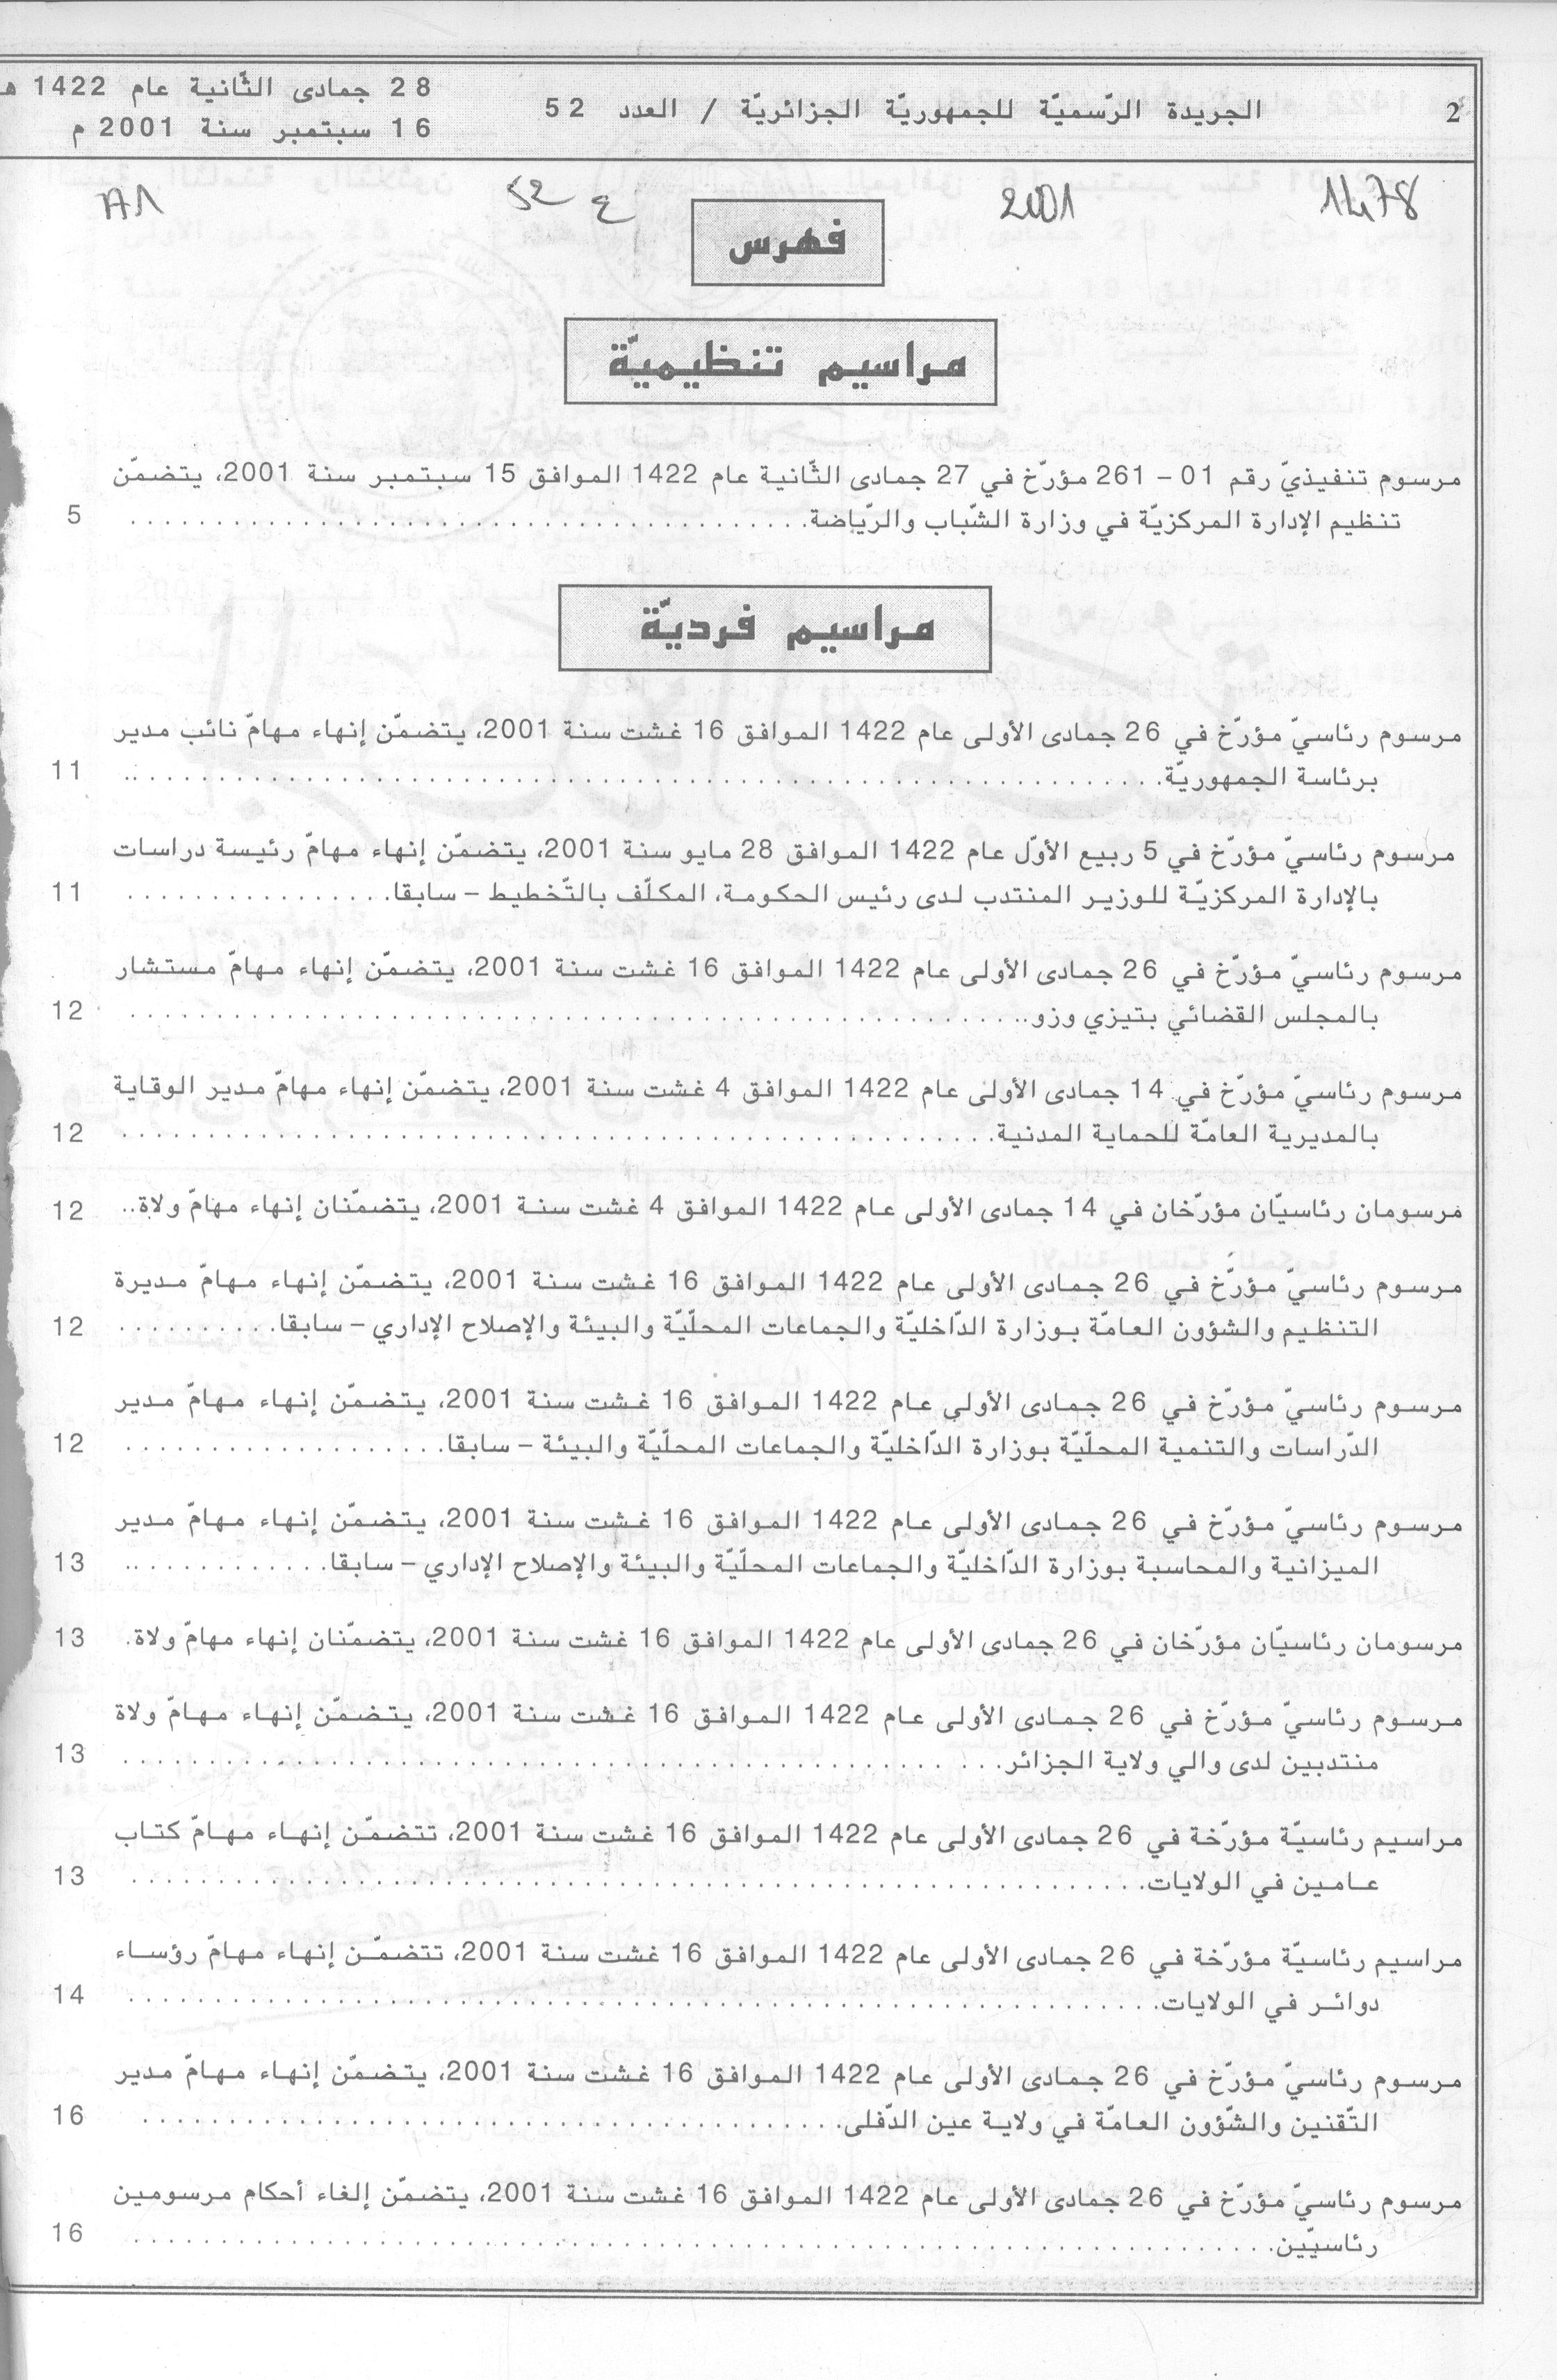 2
الجريدة الرّسميّة للجمهوريّة الجزائريّة / العدد 52
28 جمادى الثّانية عام 1422 هـ
16 سبتمبر سنة 2001 م
1478
2001
ع 52
A1
فهرس
مراسيم تنظيميّة
مرسوم تنفيذيّ رقم 01 – 261 مؤرّخ في 27 جمادى الثّانية عام 1422 الموافق 15 سبتمبر سنة 2001، يتضمّن
تنظيم الإدارة المركزيّة في وزارة الشّباب والرّياضة. . . . . . . . . . 5
مراسيم فرديّة
مرسوم رئاسيّ مؤرّخ في 26 جمادى الأولى عام 1422 الموافق 16 غشت سنة 2001، يتضمّن إنهاء مهامّ نائب مدير
برئاسة الجمهوريّة. . . . . . . . . . 11
مرسوم رئاسيّ مؤرّخ في 5 ربيع الأوّل عام 1422 الموافق 28 مايو سنة 2001، يتضمّن إنهاء مهامّ رئيسة دراسات
بالإدارة المركزيّة للوزير المنتدب لدى رئيس الحكومة، المكلّف بالتّخطيط – سابقا. . . . . . . . . . 11
مرسوم رئاسيّ مؤرّخ في 26 جمادى الأولى عام 1422 الموافق 16 غشت سنة 2001، يتضمّن إنهاء مهامّ مستشار
بالمجلس القضائي بتيزي وزو. . . . . . . . . . 12
مرسوم رئاسيّ مؤرّخ في 14 جمادى الأولى عام 1422 الموافق 4 غشت سنة 2001، يتضمّن إنهاء مهامّ مدير الوقاية
بالمديرية العامّة للحماية المدنية. . . . . . . . . . 12
مرسومان رئاسيّان مؤرّخان في 14 جمادى الأولى عام 1422 الموافق 4 غشت سنة 2001، يتضمّنان إنهاء مهامّ ولاة.. 12
مرسوم رئاسيّ مؤرّخ في 26 جمادى الأولى عام 1422 الموافق 16 غشت سنة 2001، يتضمّن إنهاء مهامّ مديرة
التنظيم والشؤون العامّة بوزارة الدّاخليّة والجماعات المحلّيّة والبيئة والإصلاح الإداري – سابقا. . . . . . . . . . 12
مرسوم رئاسيّ مؤرّخ في 26 جمادى الأولى عام 1422 الموافق 16 غشت سنة 2001، يتضمّن إنهاء مهامّ مدير
الدّراسات والتنمية المحلّيّة بوزارة الدّاخليّة والجماعات المحلّيّة والبيئة – سابقا. . . . . . . . . . 12
مرسوم رئاسيّ مؤرّخ في 26 جمادى الأولى عام 1422 الموافق 16 غشت سنة 2001، يتضمّن إنهاء مهامّ مدير
الميزانية والمحاسبة بوزارة الدّاخليّة والجماعات المحلّيّة والبيئة والإصلاح الإداري – سابقا. . . . . . . . . . 13
مرسومان رئاسيّان مؤرّخان في 26 جمادى الأولى عام 1422 الموافق 16 غشت سنة 2001، يتضمّنان إنهاء مهامّ ولاة. 13
مرسوم رئاسيّ مؤرّخ في 26 جمادى الأولى عام 1422 الموافق 16 غشت سنة 2001، يتضمّن إنهاء مهامّ ولاة
منتدبين لدى والي ولاية الجزائر. . . . . . . . . . 13
مراسيم رئاسيّة مؤرّخة في 26 جمادى الأولى عام 1422 الموافق 16 غشت سنة 2001، تتضمّن إنهاء مهامّ كتاب
عامين في الولايات. . . . . . . . . . 13
مراسيم رئاسيّة مؤرّخة في 26 جمادى الأولى عام 1422 الموافق 16 غشت سنة 2001، تتضمّن إنهاء مهامّ رؤساء
دوائر في الولايات. . . . . . . . . . 14
مرسوم رئاسيّ مؤرّخ في 26 جمادى الأولى عام 1422 الموافق 16 غشت سنة 2001، يتضمّن إنهاء مهامّ مدير
التّقنين والشّؤون العامّة في ولاية عين الدّفلى. . . . . . . . . . 16
مرسوم رئاسيّ مؤرّخ في 26 جمادى الأولى عام 1422 الموافق 16 غشت سنة 2001، يتضمّن إلغاء أحكام مرسومين
رئاسيّين. . . . . . . . . . 16